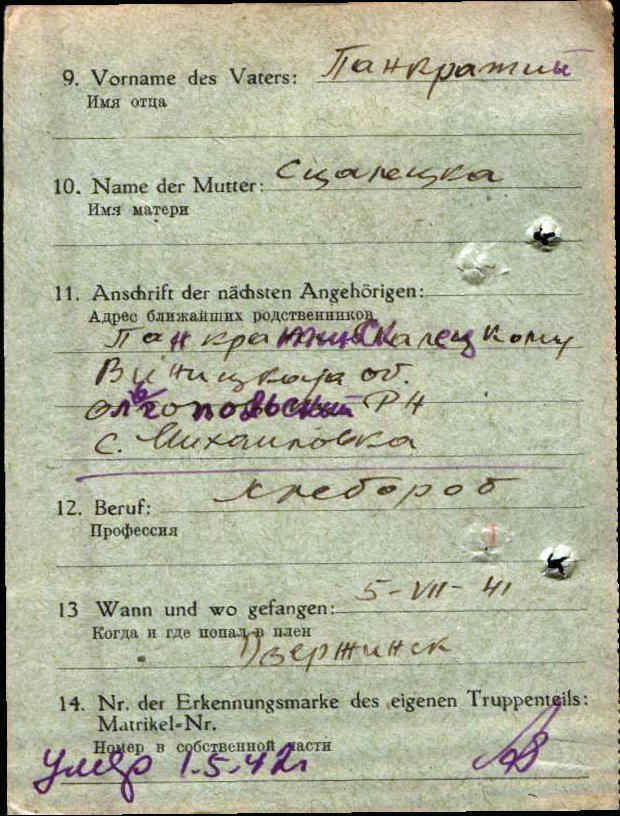 9. Vorname des Vaters: Панкратий
Имя отца
10. Name der Mutter: Сцалецка
Имя матери
11. Anschrift der nächsten Angehörigen:
Адрес ближайших родственников
Панкратий Скалецкому
Виницкая об.
Ольгопольский РН
с. Михайловка
12. Beruf: хлебороб
Профессия
13 Wann und wo gefangen: 5-VII-41
Когда и где попал в плен
Дзержинск
14. Nr. der Erkennungsmarke des eigenen Truppenteils:
Matrikel-Nr.
Номер в собственной части
Умер 1.5.42г